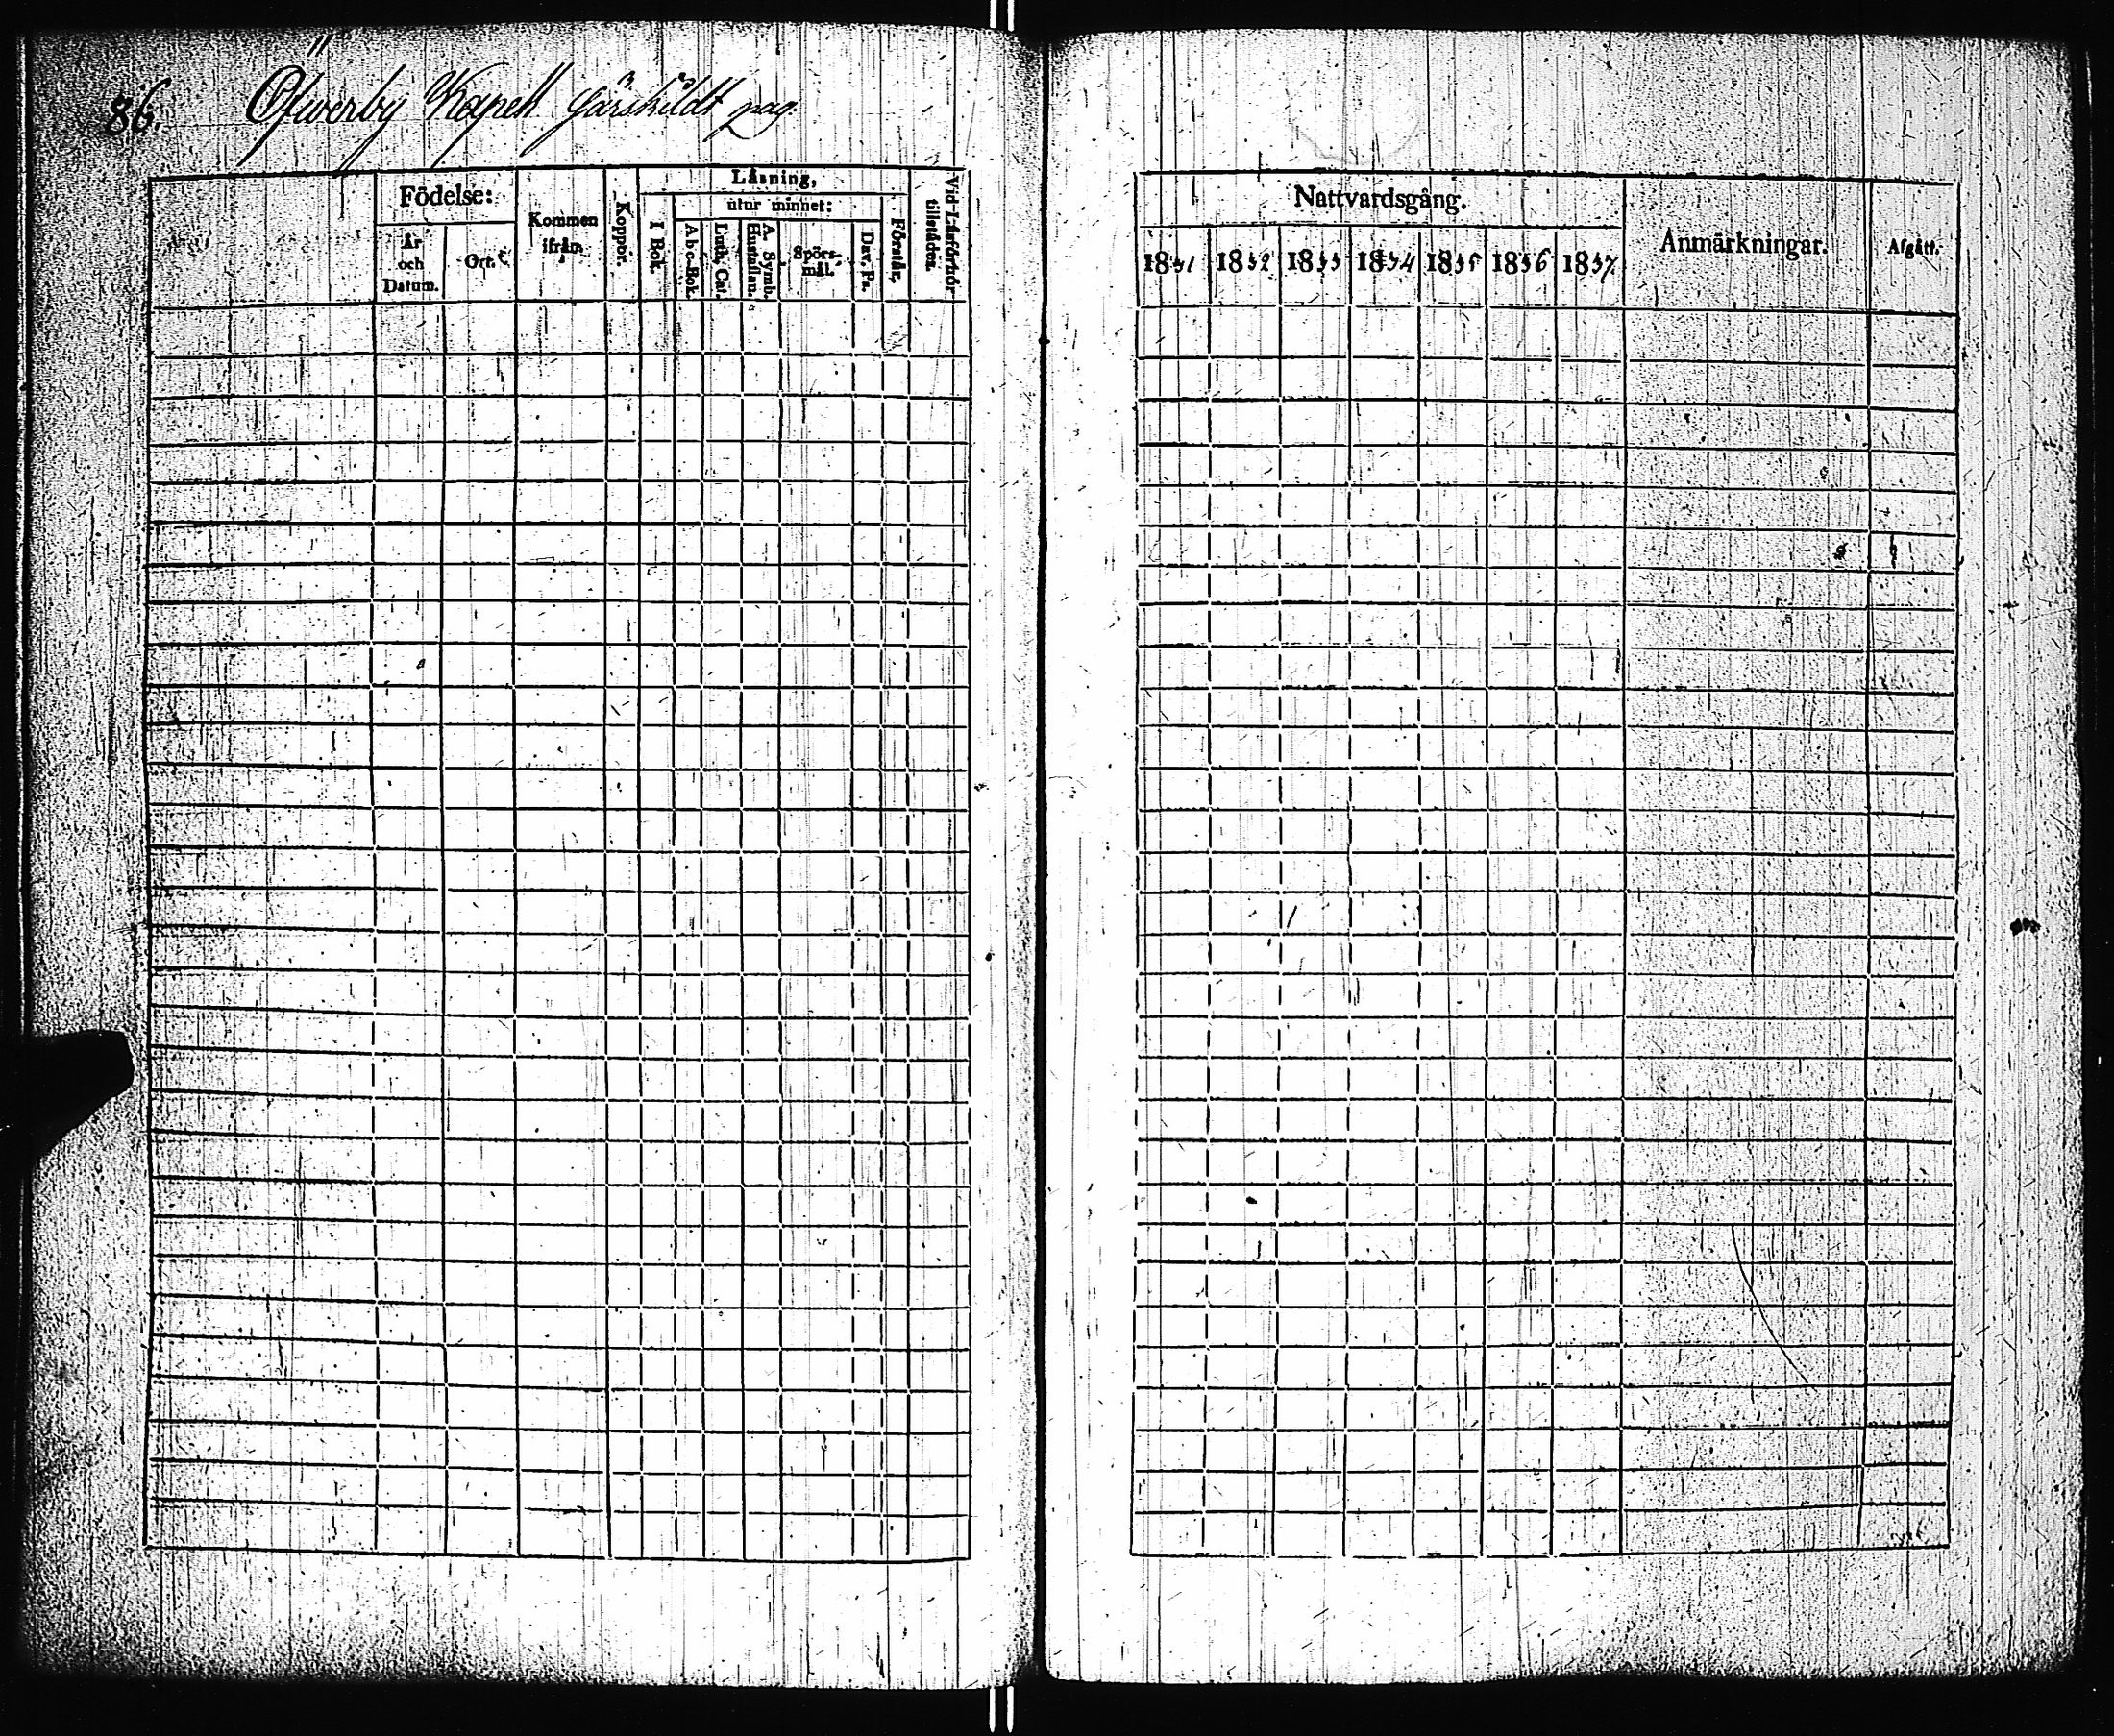 86. Öfwerby Kapell särskildt pag.
Födelse:
År och Datum.
Ort.
Kommen ifrån.
Koppor.
Läsning,
I Bok.
utur minnet:
Abc-Bok.
Luth. Cat.
A. Symb. Hustaflan.
Spörs-mål.
Dav. Ps.
Förstår.
Vid Läsförhör tillstädes.
Nattvardsgång.
1831 1832 1833 1834 1835 1836 1837.
Anmärkningar.
Afgått.